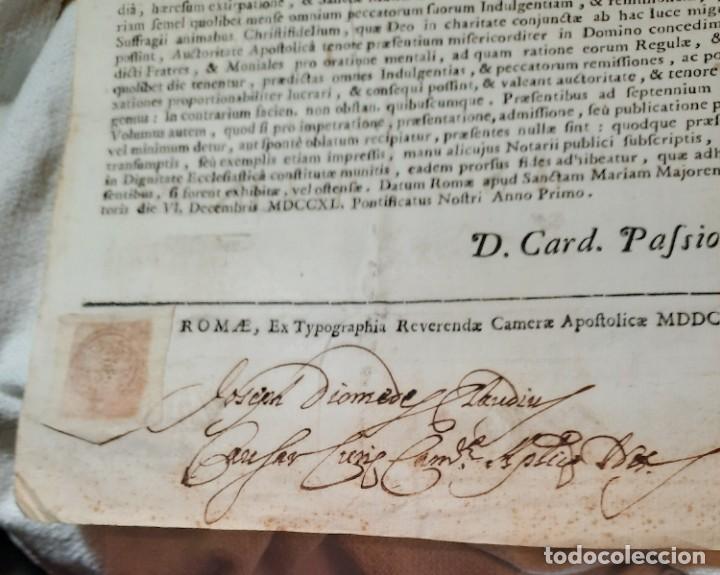 diâ, hæresum extirpatione, &
riam semel quolibet mense omnium peccatorum suorum Indulgentiam, & remissionem,
Suffragii animabus Christifidelium, quæ Deo in charitate conjunctæ ab hac luce
possint, Auctoritate Apostolicâ tenore præsentium misericorditer in Domino concedim
dicti Fratres, & Moniales pro oratione mentali, ad quam ratione eorum Regulæ, &
quolibet die tenentur, prædictas omnes Indulgentias, & peccatorum remissiones, ac
sationes proportionabiliter lucrari, & consequi possint, & valeant auctoritate, & tenore
gemus: In contrarium facien. non obstan. quibuscumque. Præsentibus ad septennium
Volumus autem, quod si pro impetratione, præsentatione, admissione, seù publicatione
vel minimum detur, aut spontè oblatum recipiatur, præsentes nullæ sint: quodque præs
transumptis, seù exemplis etiam impressis, manu alicujus Notarii publici subscriptis,
in Dignitate Ecclesiasticâ constitutæ munitis, eadem prorsus fides adhibeatur, quæ adh
sentibus, si forent exhibitæ, vel ostensæ. Datum Romæ apud Sanctam Mariam Majorem
toris die VI. Decembris MDCCXL. Pontificatus Nostri Anno Primo.
D. Card. Passio
ROMÆ, Ex Typographia Reverendæ Cameræ Apostolicæ MDCC
Joseph Diomedes Claudius
todocoleccion
todocoleccion.net